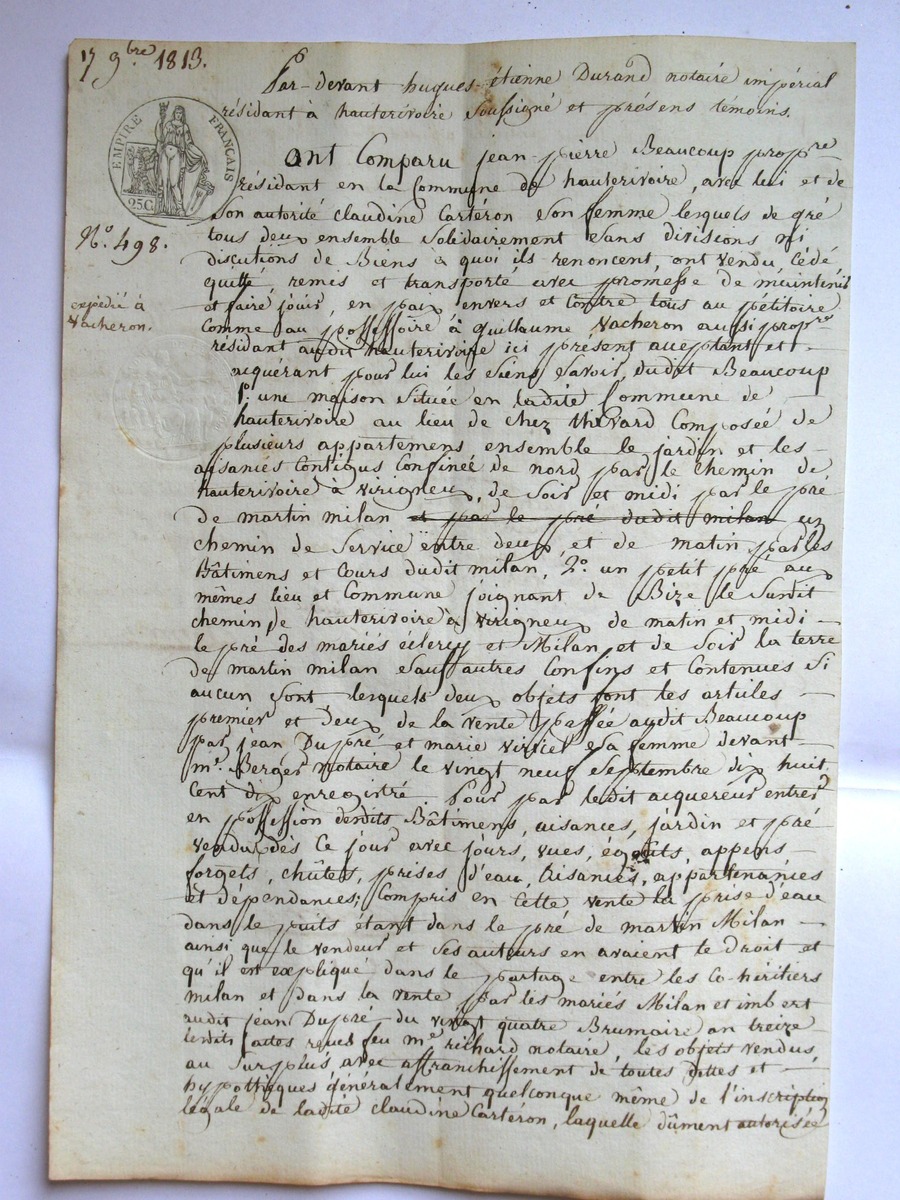 17 9bre 1813.
Par-devant hugues-étienne Durand notaire impérial
résidant à hauterivoire Soussigné et présens témoins.
EMPIRE FRANÇAIS
25 C.
N.º 498.
expédié à
Vacheron.
Ont Comparu jean-pierre Beaucoup propre
résidant en la Commune de hauterivoire, avec lui et de
Son autorité Claudine Cartéron Sa femme lesquels de gré
tous deux ensemble Solidairement Sans divisions ni
discutions de Biens à quoi ils renoncent, ont vendu Cédé
quitté, remis et transporté avec promesse de maintenir
et faire jouir, en paix envers et Contre tous au pétitoire
Comme au possessoire à Guillaume Vacheron aussi propre
résidant audit hauterivoire ici présent acceptant et
acquérant pour lui les Siens Savoir, dudit Beaucoup
1º. une maison Située en ladite Commune de
hauterivoire au lieu de chez thivard Composée de
plusieurs appartemens ensemble le jardin et les
aisances Contigus Confinée de nord par le Chemin de
hauterivoire à virigneux, de Soir et midi par le pré
de martin milan et par le pré dudit milan un
chemin de Service entre deux, et de matin par les
Bâtimens et Cours dudit milan, 2º. un petit pré aux
mêmes lieu et Commune joignant de Bize le Susdit
chemin, de hauterivoire à Virigneux de matin et midi
le pré des mariés et Milan et de Soir la terre
de martin milan Sauf autres Confins et Contenues Si
aucun Sont lesquels deux objets font les articles
premier et deux de la vente passée audit Beaucoup
par jean Dupré et marie Sa femme devant
me. Berger notaire le vingt neuf Septembre dix huit
Cent dix enregistré. Pour par ledit acquereur entrer
en possession desdits Bâtimens, aisances, jardin et pré
vendus dès Ce jour avec jours, vues, égouts, appens
forgets, chûtes, prises d'eau, Aisances, appartenances
et dépendances; Compris en Cette vente la prise d'eau
dans le puits étant dans le pré de martin Milan
ainsi que le vendeur et Ses auteurs en avaient le Droit et
qu'il est expliqué dans le partage entre les Co-héritiers
milan et Dans la vente par les mariés Milan et imbert
audit jean Dupré du vingt quatre Brumaire an treize
lesdits actes reçus feu me richard notaire, les objets vendus
au Surplus, avec affranchissement de toutes dettes et
hypothèques généralement quelconque même de l'inscription
légale de ladite Claudine Cartéron, laquelle dûment autorisée